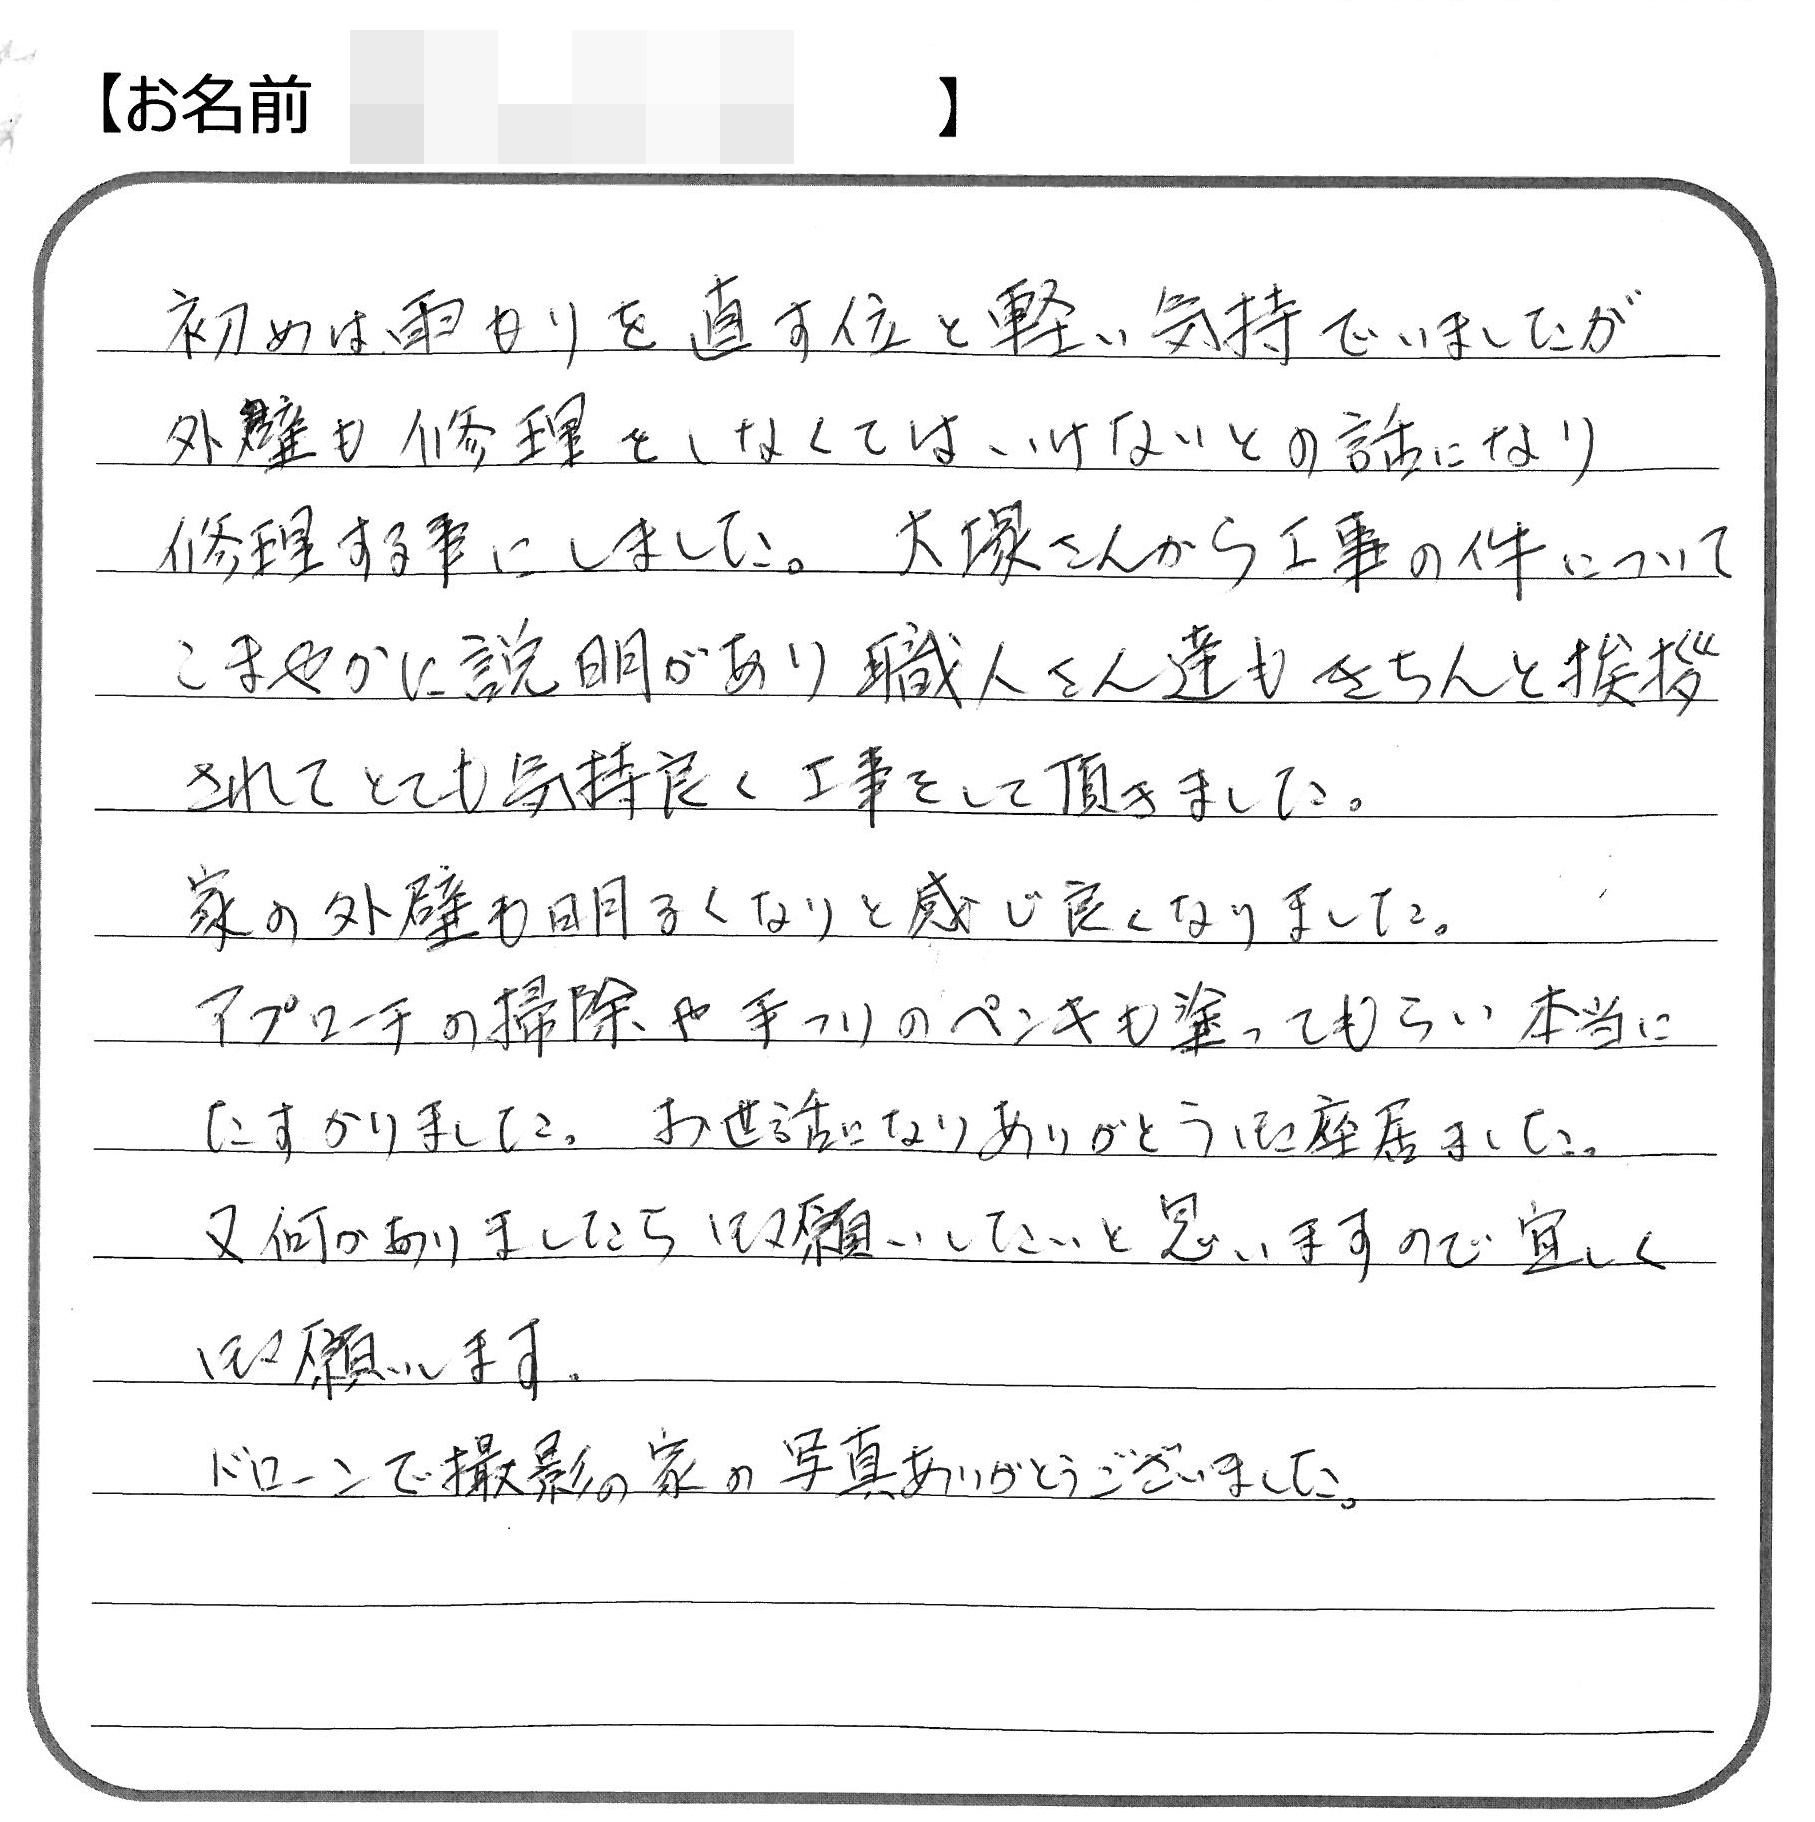 【お名前 】
初めは雨もりを直す位と軽い気持でいましたが
外壁も修理をしなくてはいけないとの話になり
修理する事にしました。 大塚さんから工事の件について
こまやかに説明があり職人さん達もきちんと挨拶
されてとても気持良く工事をして頂きました。
家の外壁も明るくなりと感じ良くなりました。
アプローチの掃除や手つりのペンキも塗ってもらい本当に
たすかりました。 お世話になりありがとう御座居ました。
又何かありましたら御願いしたいと思いますので宜しく
御願いします。
ドローンで撮影の家の写真ありがとうございました。